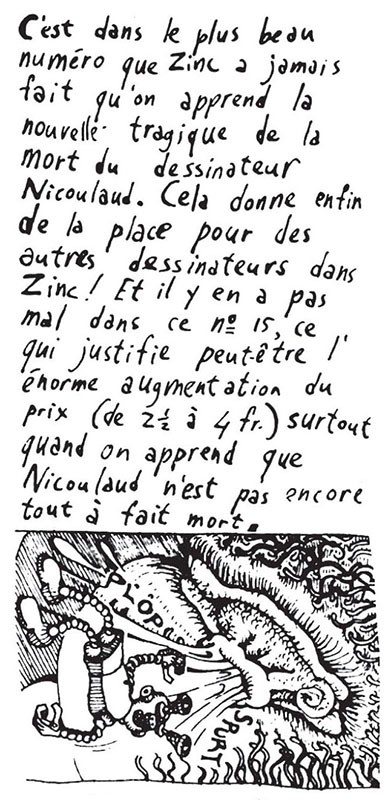 C'est dans le plus beau
numéro que Zinc a jamais
fait qu'on apprend la
nouvelle tragique de la
mort du dessinateur
Nicoulaud. Cela donne enfin
de la place pour des
autres dessinateurs dans
Zinc! Et il y en a pas
mal dans ce nº 15, ce
qui justifie peut-être l'
énorme augmentation du
prix (de 2½ à 4 fr.) surtout
quand on apprend que
Nicoulaud n'est pas encore
tout à fait mort.
PLOP
SPURT